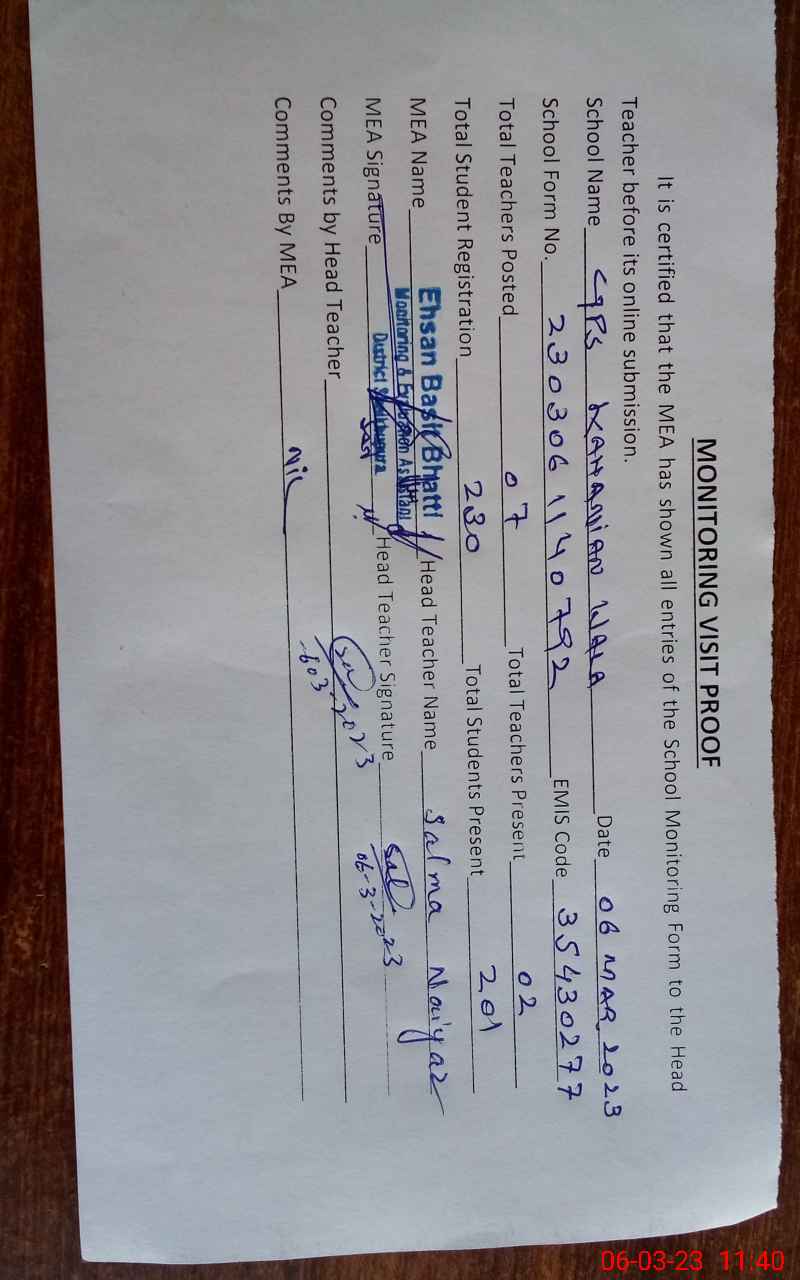 MONITORING VISIT PROOF
It is certified that the MEA has shown all entries of the School Monitoring Form to the Head
Teacher before its online submission.
School Name GPS KAHANIAN WALA Date 06 MAR 2023
School Form No. 23030611140792 EMIS Code 35430277
Total Teachers Posted 07 Total Teachers Present 02
Total Student Registration 230 Total Students Present 201
MEA Name Ehsan Basit Bhatti Head Teacher Name Salma Naiyaz
Monitoring & Evaluation Assistant
District Sheikhupura
MEA Signature Head Teacher Signature Sal
06-3-2023
Comments by Head Teacher
Comments By MEA Nil
06-03-23 11:40